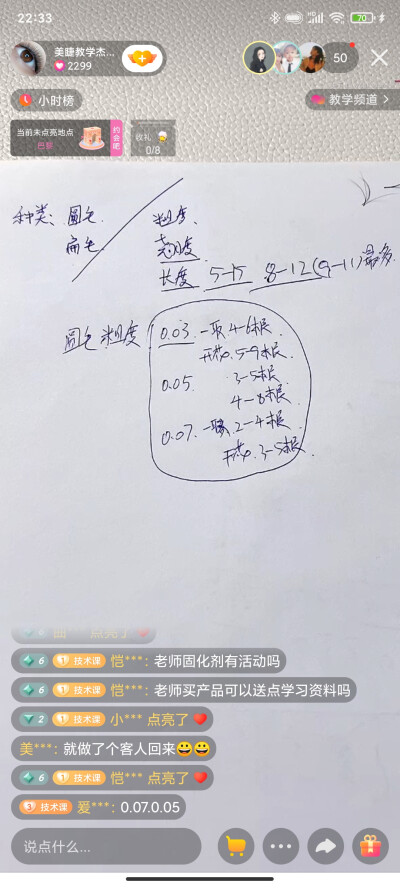 22:33
70
美睫教学杰...
2299
50
小时榜
教学频道 >
当前未点亮地点
巴黎
约会吧
收礼
0/8
种类、圆毛
扁毛
粗度
翘度
长度 5-15 8-12(9-11)最多
圆毛粗度 0.03 一取4-6根
开花.5-9根
0.05 3-5根
4-8根
0.07 一取.2-4根
开花.3-5根
点亮了
6 技术课 恺***: 老师固化剂有活动吗
6 技术课 恺***: 老师买产品可以送点学习资料吗
2 技术课 小*** 点亮了
美***: 就做了个客人回来😀😀
6 技术课 恺*** 点亮了
3 技术课 爱***: 0.07.0.05
说点什么...